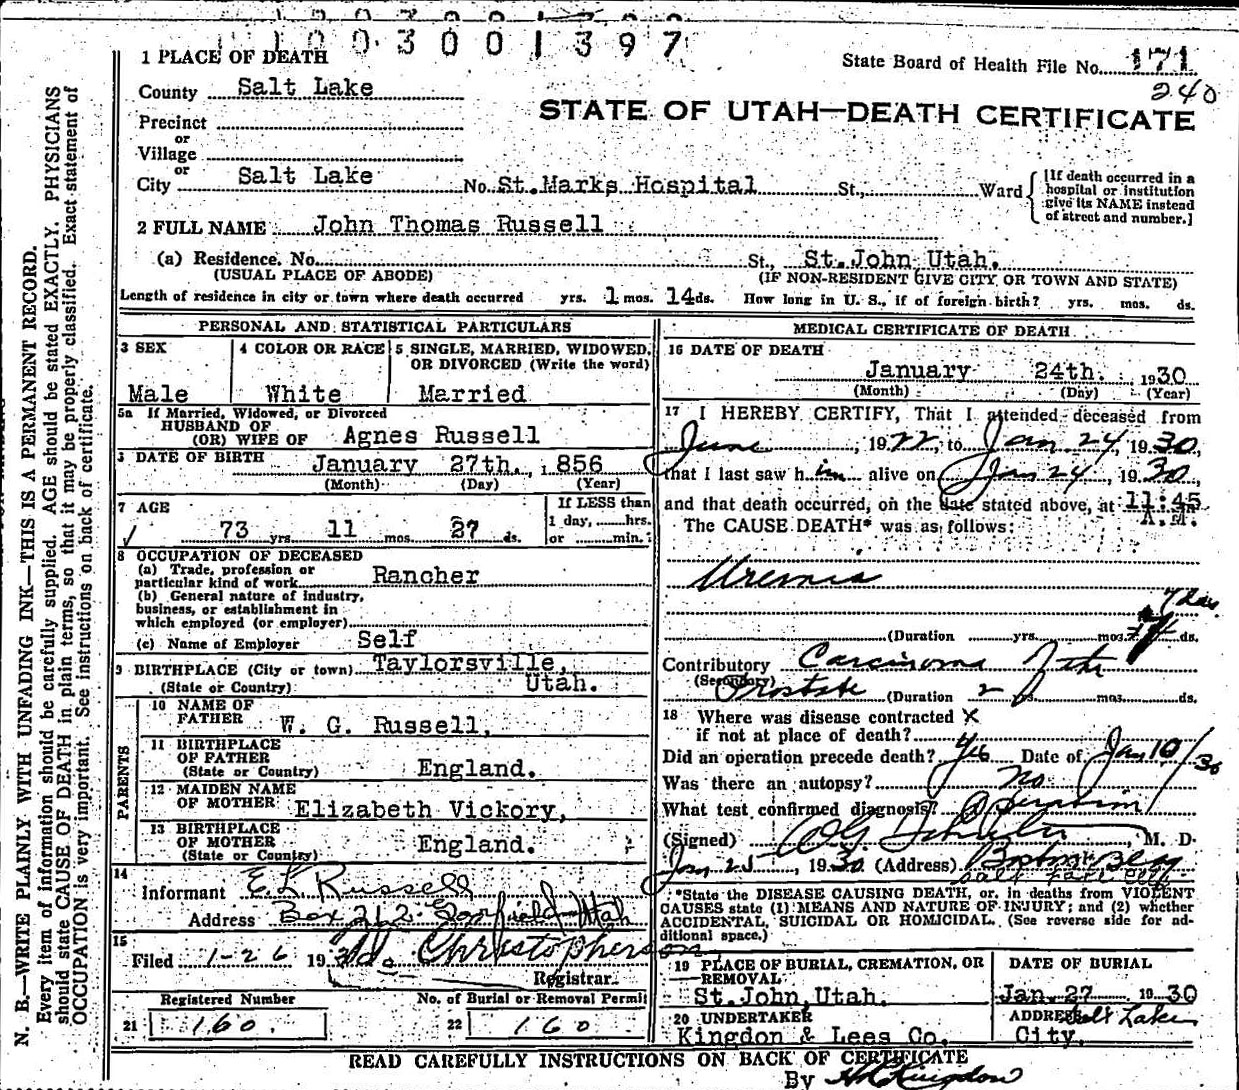 1003001397
1 PLACE OF DEATH
State Board of Health File No. 171
240
County Salt Lake
STATE OF UTAH—DEATH CERTIFICATE
Precinct
or
Village
or
City Salt Lake No. St.Marks Hospital St., Ward
[If death occurred in a hospital or institution give its NAME instead of street and number.]
2 FULL NAME John Thomas Russell
(a) Residence. No. St., St.John Utah.
(USUAL PLACE OF ABODE) (IF NON-RESIDENT GIVE CITY OR TOWN AND STATE)
Length of residence in city or town where death occurred yrs. 1 mos. 14 ds. How long in U. S., if of foreign birth? yrs. mos. ds.
PERSONAL AND STATISTICAL PARTICULARS
3 SEX
Male
4 COLOR OR RACE
White
5 SINGLE, MARRIED, WIDOWED,
OR DIVORCED (Write the word)
Married
5a If Married, Widowed, or Divorced
HUSBAND OF
(OR) WIFE OF Agnes Russell
DATE OF BIRTH January 27th. 1856
(Month) (Day) (Year)
7 AGE
73 yrs. 11 mos. 27 ds.
If LESS than
1 day, hrs.
or min.
8 OCCUPATION OF DECEASED
(a) Trade, profession or
particular kind of work Rancher
(b) General nature of industry,
business, or establishment in
which employed (or employer)
(c) Name of Employer Self
9 BIRTHPLACE (City or town) Taylorsville,
(State or Country) Utah.
PARENTS
10 NAME OF
FATHER W. G. Russell,
11 BIRTHPLACE
OF FATHER
(State or Country) England.
12 MAIDEN NAME
OF MOTHER Elizabeth Vickory,
13 BIRTHPLACE
OF MOTHER
(State or Country) England.
14
Informant E. L. Russell
Address Box 212 Garfield Utah
15
Filed 1-26 1930 Christopherson
Registrar
Registered Number
21 160.
No. of Burial or Removal Permit
22 160
MEDICAL CERTIFICATE OF DEATH
16 DATE OF DEATH
January 24th. 1930
(Month) (Day) (Year)
17 I HEREBY CERTIFY, That I attended deceased from
June, 1922, to Jan 24, 1930,
that I last saw him alive on Jan 24, 1930
and that death occurred, on the date stated above, at 11:45
A.M.
The CAUSE DEATH* was as follows:
Uremia
7 days
(Duration yrs. mos. ds.
Contributory Carcinoma of the
(Secondary) Prostate (Duration 2 yrs. mos. ds.
18 Where was disease contracted X
if not at place of death?
Did an operation precede death? Yes Date of Jan 10/30
Was there an autopsy? no
What test confirmed diagnosis? Operation
(Signed) M. D.
Jan 25, 1930 (Address) Boston Bldg
Salt Lake City
*State the DISEASE CAUSING DEATH, or, in deaths from VIOLENT
CAUSES state (1) MEANS AND NATURE OF INJURY; and (2) whether
ACCIDENTAL, SUICIDAL OR HOMICIDAL. (See reverse side for ad-
ditional space.)
19 PLACE OF BURIAL, CREMATION, OR
REMOVAL
St.John,Utah.
DATE OF BURIAL
Jan. 27 1930
20 UNDERTAKER
Kingdon & Lees Co.
ADDRESS Salt Lake
City.
READ CAREFULLY INSTRUCTIONS ON BACK OF CERTIFICATE
By Kingdon
N. B.—WRITE PLAINLY WITH UNFADING INK—THIS IS A PERMANENT RECORD.
Every item of information should be carefully supplied. AGE should be stated EXACTLY. PHYSICIANS
should state CAUSE OF DEATH in plain terms, so that it may be properly classified. Exact statement of
OCCUPATION is very important. See instructions on back of certificate.